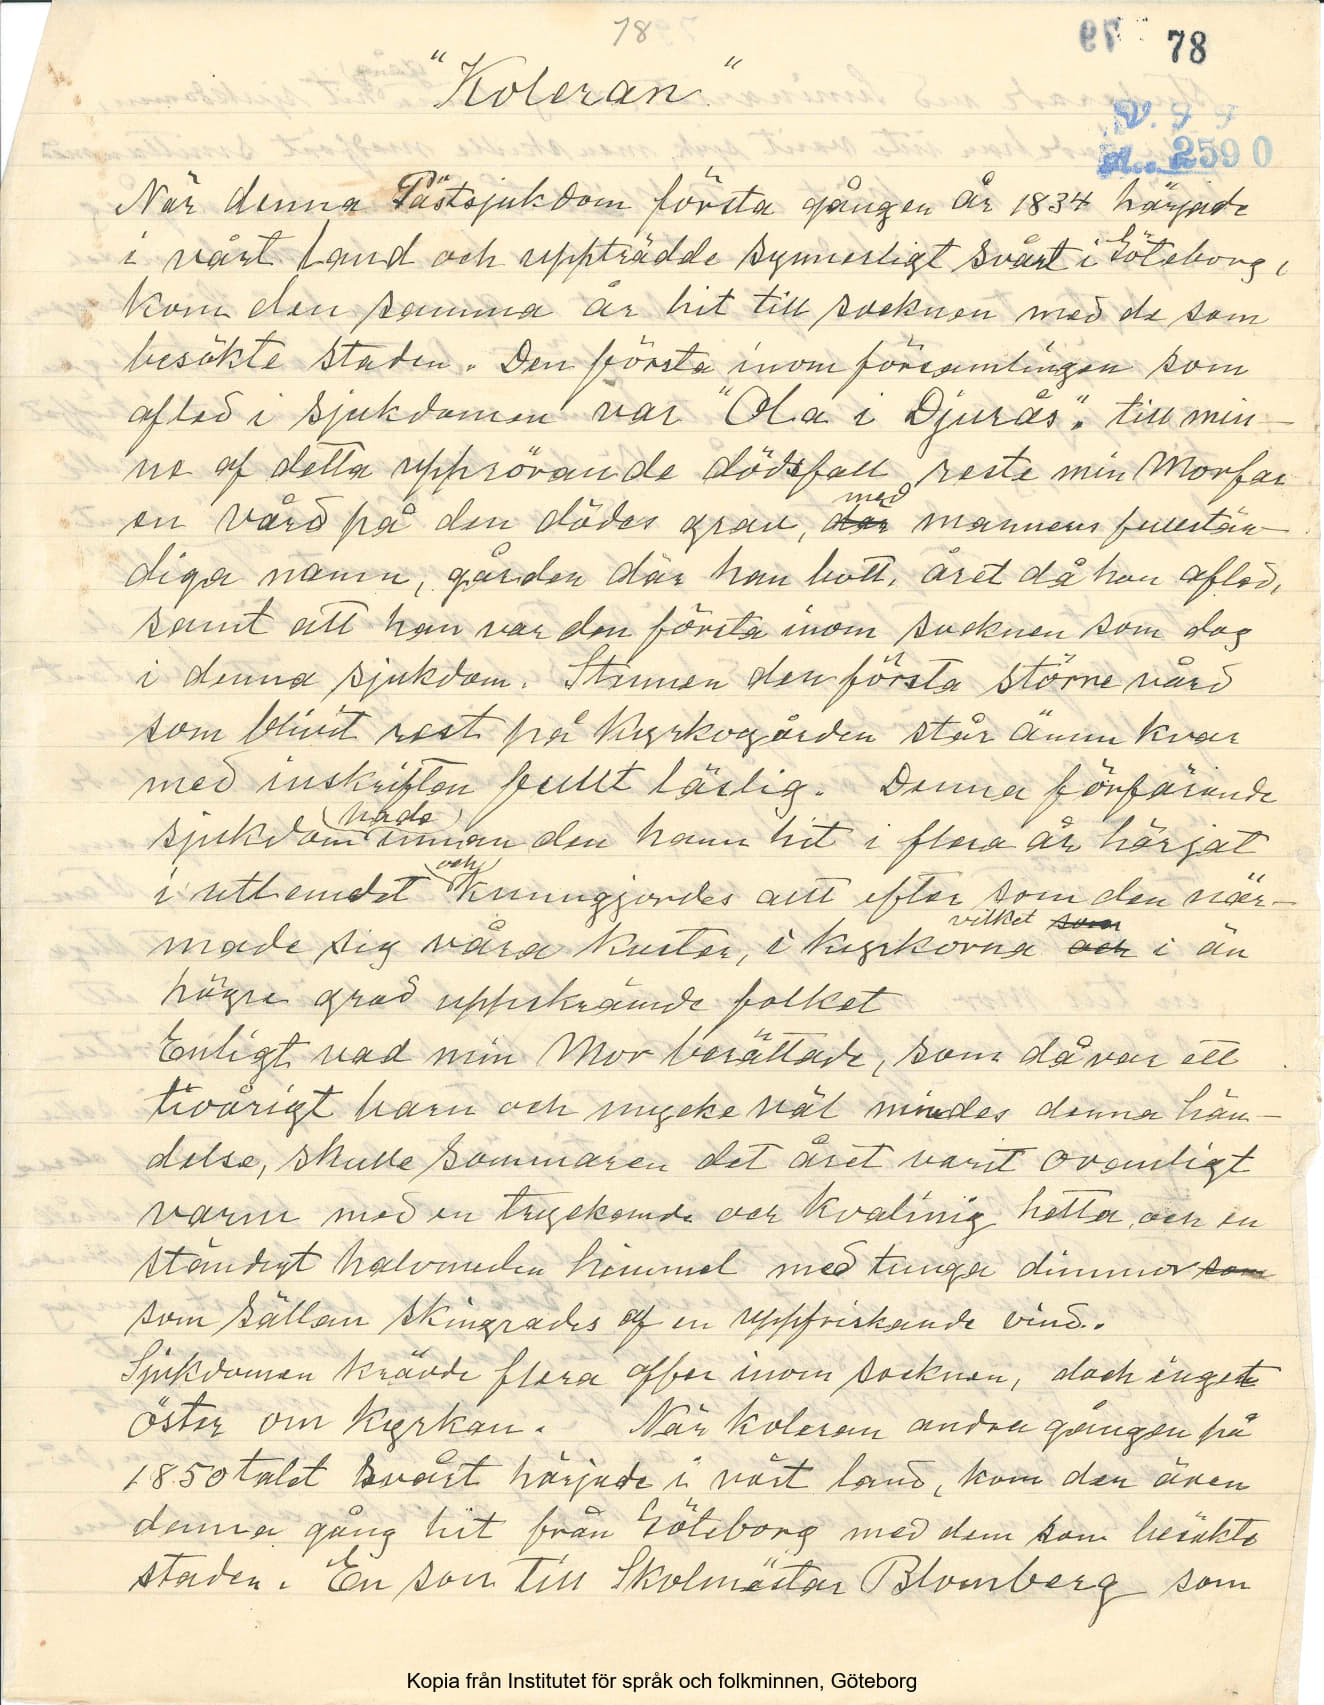 78
78
"Koleran"
V. G. F
2590
När denna Pästsjukdom första gången år 1834 härjade
i vårt land och uppträdde synnerligt svårt i Göteborg,
kom den samma år hit till socknen med de som
besökte staden. Den första inom församlingen som
afled i sjukdomen var "Ola i Djurås". till min-
ne af detta upprörande dödsfall reste min Morfar
en vård på den dödes grav, där med mannens fullstän-
diga namn, gården där han bott, året då han afled,
samt att han var den första inom socknen som dog
i denna sjukdom. Stenen den första större vård
som blivit rest på kyrkogården står ännu kvar
med inskriften fullt läslig. Denna förfärande
sjukdom hade innan den hann hit i flera år härjat
i utlandet och kunngjordes allt efter som den när-
made sig våra kuster, i kyrkorna och som vilket i än
högre grad uppskrämde folket
Enligt vad min Mor berättade, som då var ett
tioårigt barn och mycke väl mindes denna hän-
delse, skulle sommaren det året varit ovanligt
varm med en tryckande och kvalmig hetta, och en
ständigt halvmulen himmel med tunga dimmor som
som sällan skingrades af en uppfriskande vind.
Sjukdomen krävde flera offer inom socknen, doch inget
öster om kyrkan. När koleran andra gången på
1850 talet svårt härjade i vårt land, kom den även
denna gång hit från Göteborg med dem som besökte
staden. En son till Skolmästar Blomberg som
Kopia från Institutet för språk och folkminnen, Göteborg